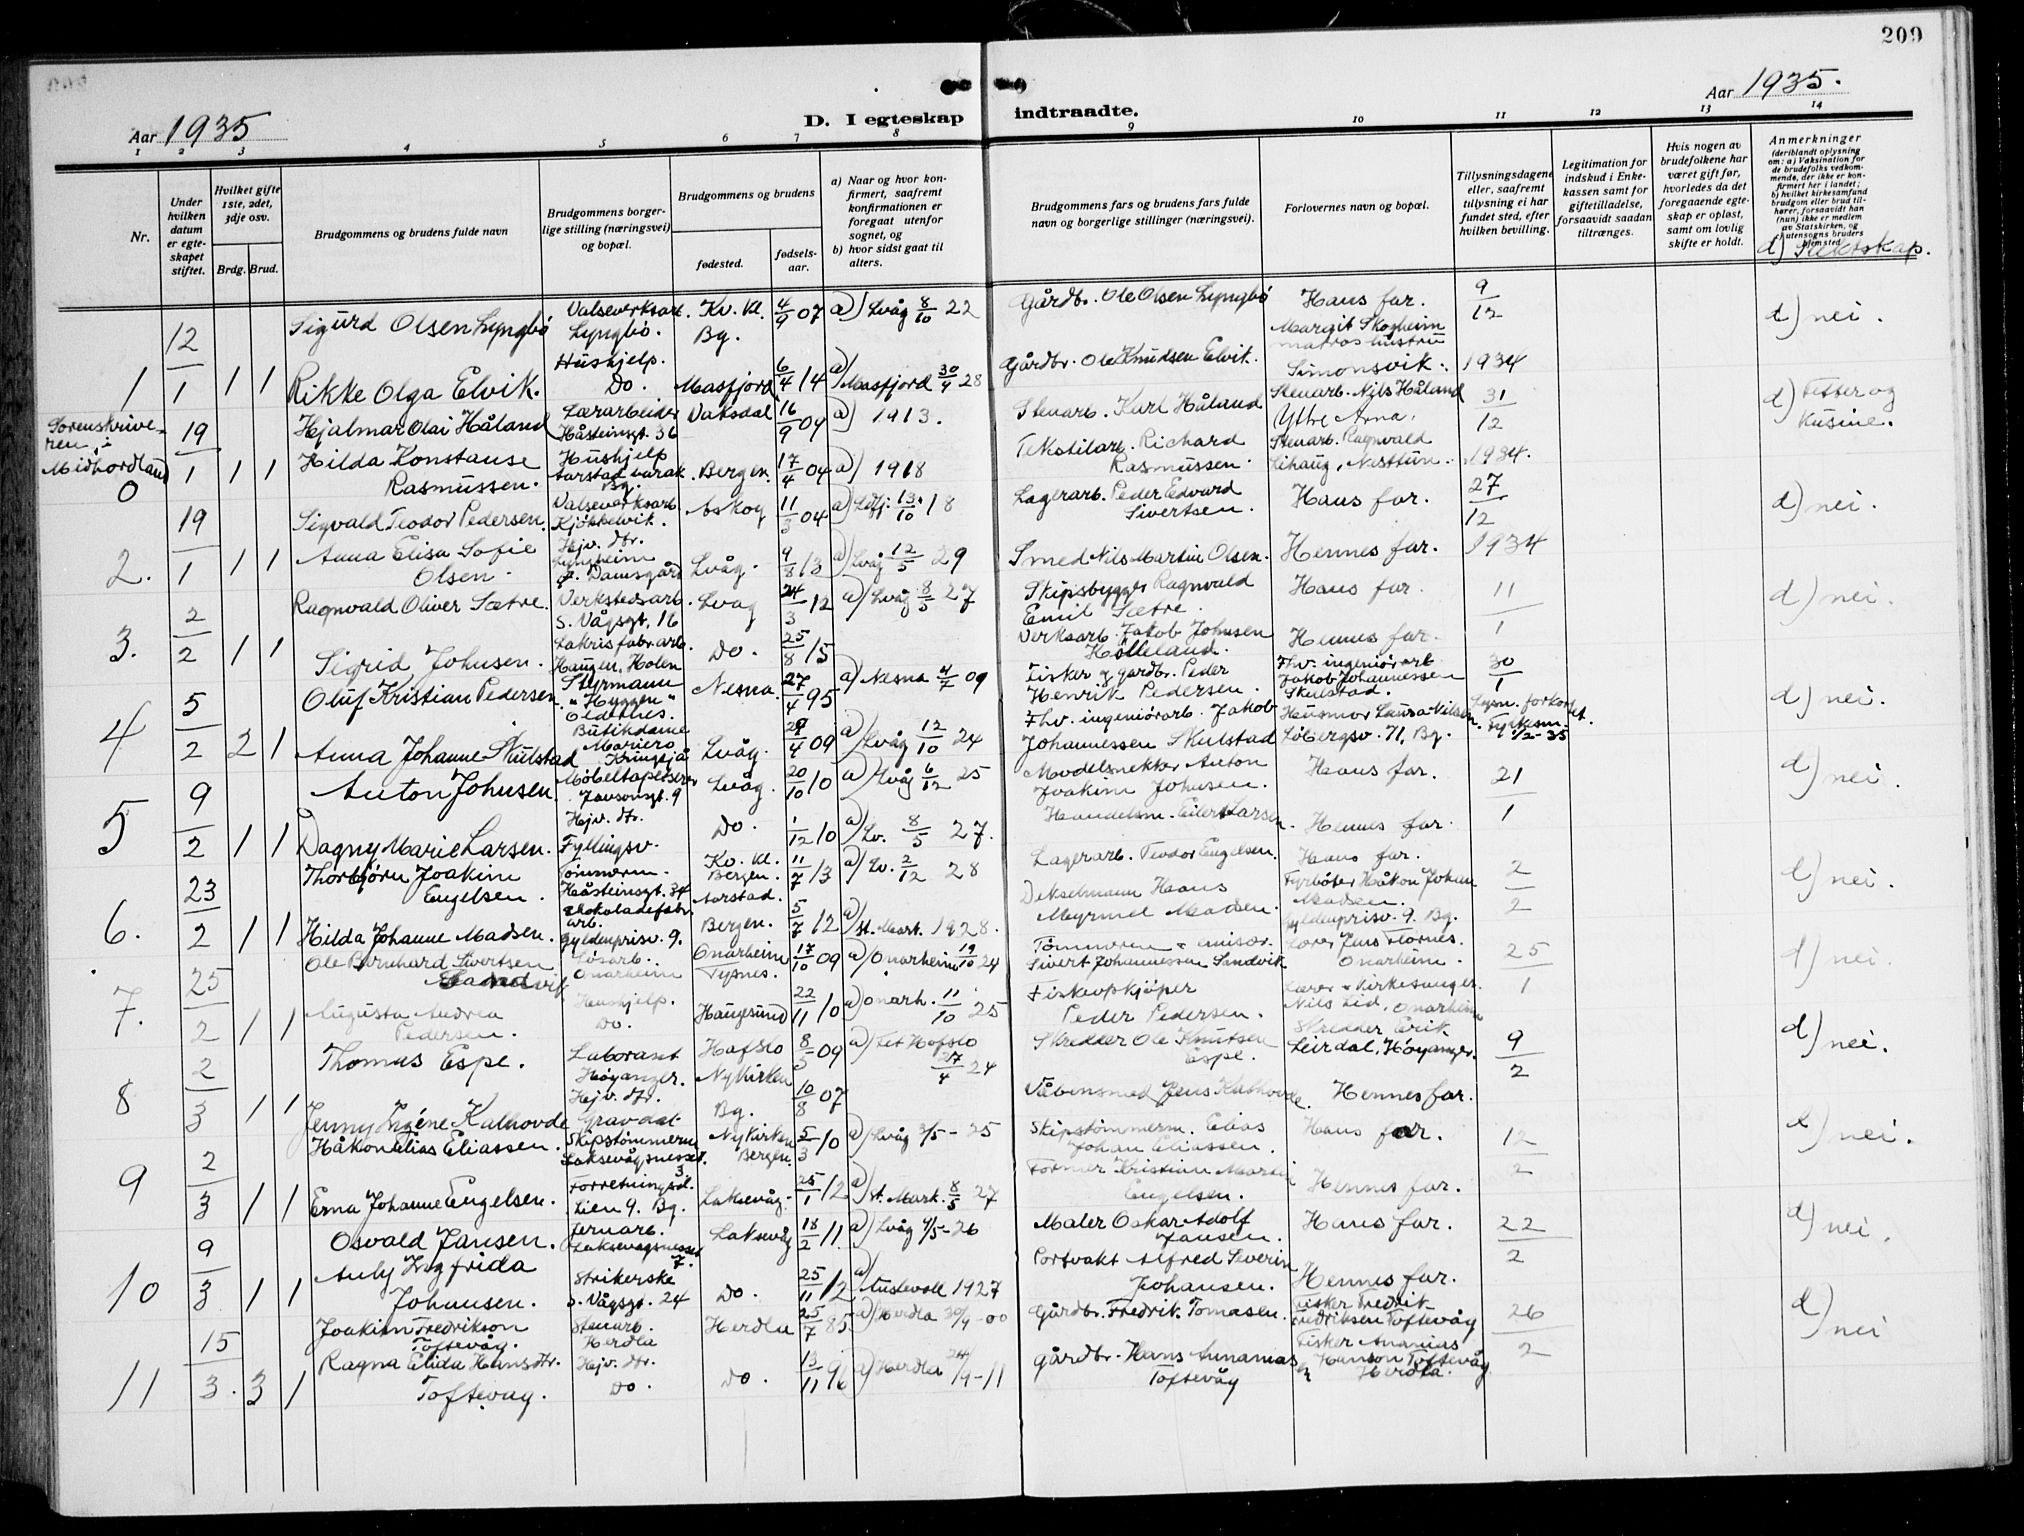 209
Aar 1935
D. I egteskap indtraadte.
Aar 1935.
1 2 3 4 5 6 7 8 9 10 11 12 13 14
Nr.
Under hvilken datum er egteskapet stiftet.
Hvilket gifte 1ste, 2det, 3dje osv.
Brdg. Brud.
Brudgommens og brudens fulde navn
Brudgommens borgerlige stilling (næringsvei) og bopæl.
Brudgommens og brudens
fødested.
fødselsaar.
a) Naar og hvor konfirmert, saafremt konfirmationen er foregaat utenfor sognet, og
b) hvor sidst gaat til alters.
Brudgommens fars og brudens fars fulde navn og borgerlige stillinger (næringsvei).
Forlovernes navn og bopæl.
Tillysningsdagene eller, saafremt tillysning ei har fundet sted, efter hvilken bevilling.
Legitimation for indskud i Enkekassen samt for giftetilladelse, forsaavidt saadan tiltrænges.
Hvis nogen av brudefolkene har været gift før, hvorledes da det foregaaende egteskap er opløst, samt om lovlig skifte er holdt.
Anmerkninger
(deriblandt oplysning om: a) Vaksination for de brudefolks vedkommende, der ikke er konfirmert her i landet; b) hvilket kirkesamfund brudgom eller brud tilhører, forsaavidt han (hun) ikke er medlem av Statskirken, og c) utensogns bruders hjemsted
d) Slektskap.
12/1 Sigurd Olsen Lyngbø Valseverksarb. Lyngbø. Kv. kl. Bg. 4/9 07 a) Lvåg 8/10 22 Gårdbr. Ole Olsen Lyngbø Hans far. 9/12 d) nei.
1 1 1 Rikke Olga Elvik. Hushjelp. Do. Masfjord 6/4 14 a) Masfjord 30/9 28 Gårdbr. Ole Knudsen Elvik. Margit Skogheim matroshustru Simonsvik. 1934
Sorenskriveren i Midhordland
19/1 Hjalmar Olai Håland Lærarbeider Håsteinsgt. 36 Vaksdal 16/9 09 a) 1913. Stenarb. Karl Håland Stenarb. Nils Håland Ytre Arna. 31/12 d) Fetter og Kusine.
0 1 1 Hilda Konstanse Rasmussen. Hushjelp Aarstad barak. Bg. Bergen. 17/4 04 a) 1918 Tekstilarb. Richard Rasmussen. Stenarb. Ragnvald Lihaug, Nesttun. 1934.
19/1 Sigvald Teodor Pedersen. Valseverksarb. Kjøkkelvik. Askøy 11/3 04 a) 13/10 18 Lagerarb. Peder Edvard Sivertsen. Hans far. 27/12 d) nei.
2. 1 1 Anna Elisa Sofie Olsen. Hejv. dtr. Lyngheim p. Damsgård Lvåg. 9/8 13 a) Lvåg 12/5 29 Smed Nils Martin Olsen. Hennes far. 1934
2/2 Ragnvald Oliver Sætre. Verkstedsarb. S. Vågsgt. 16 Lvåg 24/3 12 a) Lvåg 8/5 27 Skipsbygger Ragnvald Emil Sætre. Hans far. 11/1 d) nei.
3. 1 1 Sigrid Johnsen. Lakrisfabr. arb. Haugen, Holen Do. 25/8 15 Verksarb. Jakob Johnsen Hølleland. Hennes far.
5/2 Oluf Kristian Pedersen Styrmann "Huggen" Oldernes. Nesna. 27/4 95 a) Nesna 4/7 09 Fisker g. gardbr. Peder Henrik Pedersen. Fhv. ingeniørarb. Jakob Johannessen Skulstad. 30/1 d) nei.
4 2 1 Anna Johanne Skulstad Butikdame Mariero Kringsjå Lvåg. 4 09 a) Lvåg 12/10 24 Fhv. ingeniørarb. Jakob Johannessen Skulstad Husmor Laura Nilsen Løbergsv. 71, Bg. Lysn. forkortet. 1/2-35
9/2 Anton Johnsen. Møbeltapetserer Jansonsgt. 9 Lvåg. 20/10 10 a) Lvåg 6/12 25 Modelsnekker Anton Joakim Johnsen. Hans far. 21/1 d) nei.
5 1 1 Dagny Marie Larsen. Hejv. dtr. Fyllingsv. Do. 1/12 10 a) Lv. 8/5 27. Handelsm. Eilert Larsen. Hennes far.
23/2 Thorbjørn Joakim Engelsen. Tømmerm. Håsteinsgt. 34 Kv. kl. Bergen. 11/7 13 a) Lv. 2/12 28 Lagerarb. Teodor Engelsen. Hans far. 2/2 d) nei.
6. 1 1 Hilda Johanne Madsen. Chokoladefabr. arb. Gyldenprisv. 9. Aarstad. Bergen. 5/7 12 a) St. Mark. 1928. Dekselmann Hans Myrmel Madsen. Fyrbøter Håkon Johan Madsen. Gyldenprisv. 9. Bg.
25/2 Ole Bernhard Sivertsen Sandvik Løsarb. Onarheim Onarheim Tysnes. 17/10 09 a) Onarheim 19/10 24 Tømmerm. Sivert Johannessen Sandvik Lærer Jens Flornes. Onarheim. 25/1 d) nei.
7. 1 1 Augusta Andrea Pedersen. Hushjelp. Do. Haugesund 22/11 10 a) Onarh. 11/10 25 Fiskeopkjøper Peder Pedersen. Lærer Kirkesanger Nils Lid, Onarheim
2/3 Thomas Espe. Laborant Høyanger. Hafslo 8/5 09 a) Fet Hafslo 27/4 24 Skredder Ole Knutsen Espe. Skredder Erik Leirdal, Høyanger. 9/2 d) nei.
8 1 1 Jenny Irgéne Kalhovde Hejv. dtr. Gravdal Nykirken Bg. 10/8 07 Våbensmed Jens Kalhovde. Hennes far.
2/3 Håkon Elias Eliassen. Skipstømmerm. Laksevågsnesset. 3. Nykirken Bergen. 5/3 10 a) Lvåg 3/5-25 Skipstømmerm. Elias Johan Eliassen. Hans far. 12/2 d) nei.
9 1 1 Erna Johanne Engelsen. Forretningsd. Lien 9. Bg. Laksevåg. 25/1 12 a) St. Mark. 8/5 27 Former Kristian Martin Engelsen. Hennes far.
9/3 Osvald Jansen. Jernarb. Laksevågsnesset 7. Laksevåg 18/2 11 a) Lvåg 9/5-26 Maler Oskar Adolf Jansen. Hans far. 22/2 d) nei.
10 1 1 Anly Ingfrida Johansen. Strikerske S. Vågsgt. 24 Do. 25/11 12 a) Austevoll 1927 Portvakt Alfred Severin Johansen. Hennes far.
15/3. Joakim Fredrikson Toftevåg. Stenarb. Herdla Herdla 25/7 85 a) Herdla 30/9-00 Gårdbr. Fredrik Tomasen. Fisker Fredrik Fredriksen Toftevåg 26/2 d) nei
11 3 1 Ragna Elida Hansdtr. Toftevåg. Hejv. dtr. Do. Do. 13/11 96 a) Herdla 24/9-11 Gårdbr. Hans Annanias Toftevåg Fisker Ananias Hanson Toftevåg Herdla.